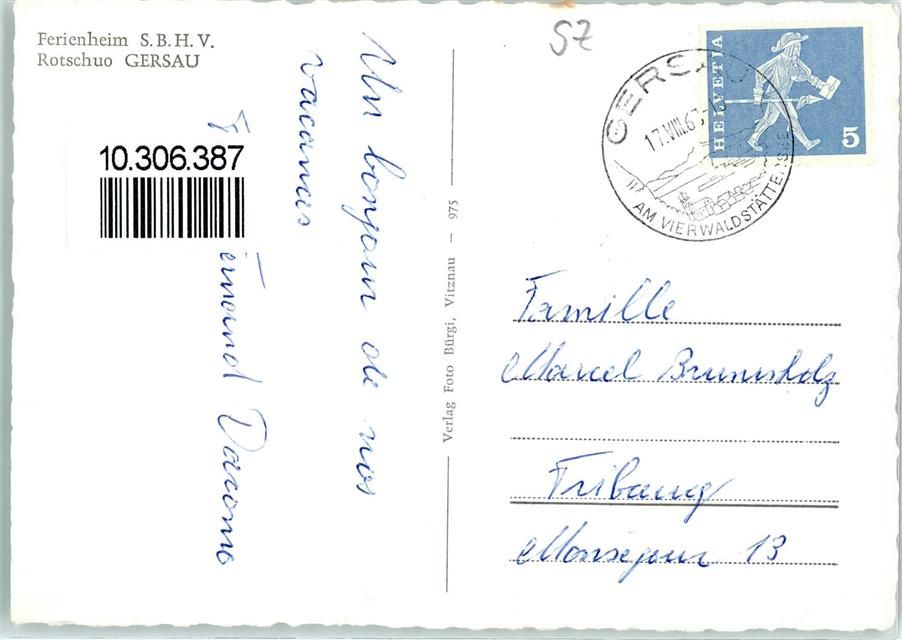 Ferienheim S.B.H.V.
Rotschuo GERSAU
10.306.387
Un bonjour de nos
vacances
Fernand
Verlag Foto Bürgi, Vitznau — 975
SZ
HELVETIA
5
GERSAU
17.VIII.6
AM VIERWALDSTÄTTERSEE
Famille
Marcel Brunisholz
Fribourg
Monséjour 13